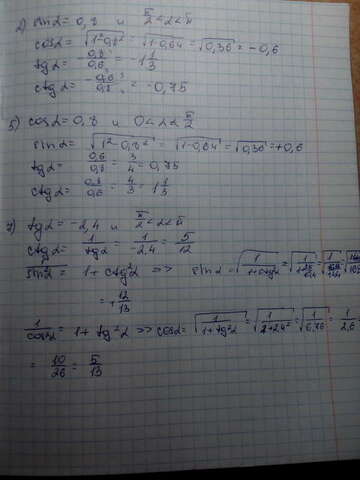 2) sinα = 0,8 и π/2 < α < π
cosα = √(1² - 0,8²) = √(1-0,64) = √0,36 = -0,6
tgα = -0,8/0,6 = -1 1/3
ctgα = -0,6/0,8 = -0,75
5) cosα = 0,8 и 0 < α < π/2
sinα = √(1² - 0,8²) = √(1-0,64) = √0,36 = +0,6
tgα = 0,6/0,8 = 3/4 = 0,75
ctgα = 0,8/0,6 = 4/3 = 1 1/3
7) tgα = -2,4 и π/2 < α < π
ctgα = 1/tgα = 1/-2,4 = 5/12
sin²α = 1 + ctg²α => sinα = √(1/(1+ctg²α)) =
= +12/13
1/cos²α = 1 + tg²α => cosα = √(1/(1+tg²α)) = = 1/2,6
= 10/26 = 5/13